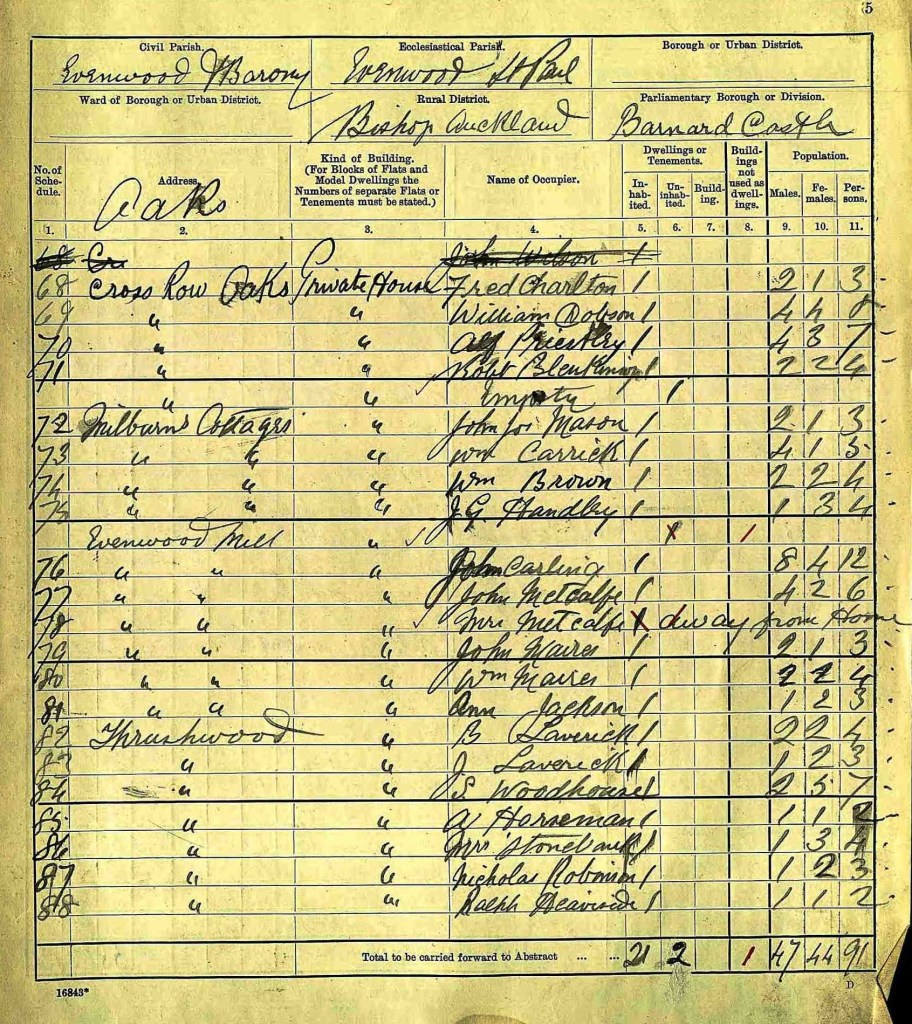 5
Civil Parish. Ecclesiastical Parish. Borough or Urban District.
Evenwood & Barony Evenwood St Paul
Ward of Borough or Urban District. Rural District. Parliamentary Borough or Division.
Bishop Auckland Barnard Castle
No. of Schedule. Address. Kind of Building. (For Blocks of Flats and Model Dwellings the Numbers of separate Flats or Tenements must be stated.) Name of Occupier. Dwellings or Tenements. Inhabited. Uninhabited. Building. Buildings not used as dwellings. Population. Males. Females. Persons.
Oaks
1. 2. 3. 4. 5. 6. 7. 8. 9. 10. 11.
68 Cr John Wilson 1
68 Cross Row Oaks Private House Fred Charlton 1 2 1 3
69 " " William Dobson 1 4 4 8
70 " " Alf Priestley 1 4 3 7
71 " " Robt Blenkinsop 1 2 2 4
" " Empty 1
72 Milburns Cottages " John Jos Mason 1 2 1 3
73 " " " Wm Carrick 1 4 1 5
74 " " " Wm Brown 1 2 2 4
75 " " " J.G. Handley 1 1 3 4
Evenwood Mill " 1
76 " " " John Carling 1 8 4 12
77 " " " John Metcalfe 1 4 2 6
78 " " " Mrs Metcalfe away from Home
79 " " " John Maires 1 2 1 3
80 " " " Wm Maires 1 2 2 4
81 " " " Ann Jackson 1 1 2 3
82 Thrushwood " B Laverick 1 2 2 4
83 " " J Laverick 1 1 2 3
84 " " S Woodhouse 1 2 5 7
85 " " A Horseman 1 1 1 2
86 " " Mrs Stonebank 1 1 3 4
87 " " Nicholas Robinson 1 1 2 3
88 " " Ralph Heaviside 1 1 1 2
Total to be carried forward to Abstract ... ... 21 2 1 47 44 91
16843* D